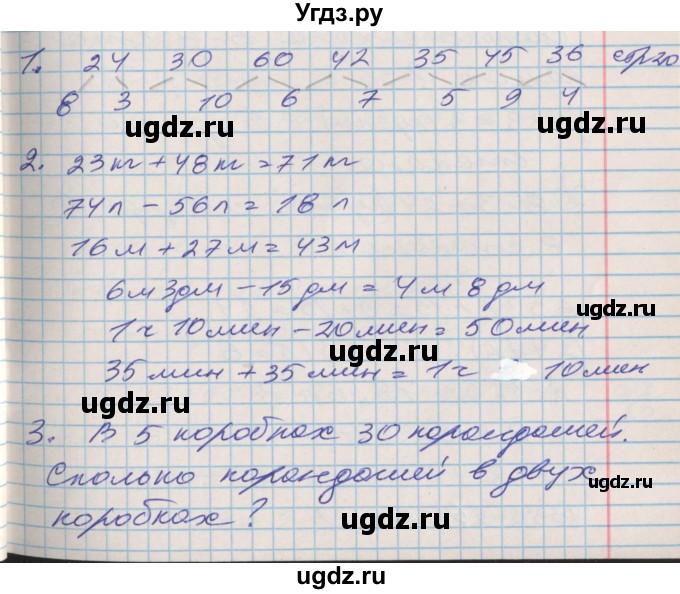 Угдз.ру
1. 24 30 60 42 35 45 36 стр 20
8 3 10 6 7 5 9 4
ugdz.ru ugdz.ru
2. 23 кг + 48 кг = 71 кг
ugdz.ru
74л - 56л = 18 л
16м + 27м = 43м
ugdz.ru
6м 3дм - 15 дм = 4м 8 дм
1ч 10мин - 20мин = 50мин
ugdz.ru
35мин + 35мин = 1ч 10мин
ugdz.ru
3. В 5 коробках 30 карандашей.
ugdz.ru
Сколько карандашей в двух
коробках?
ugdz.ru
ugdz.ru